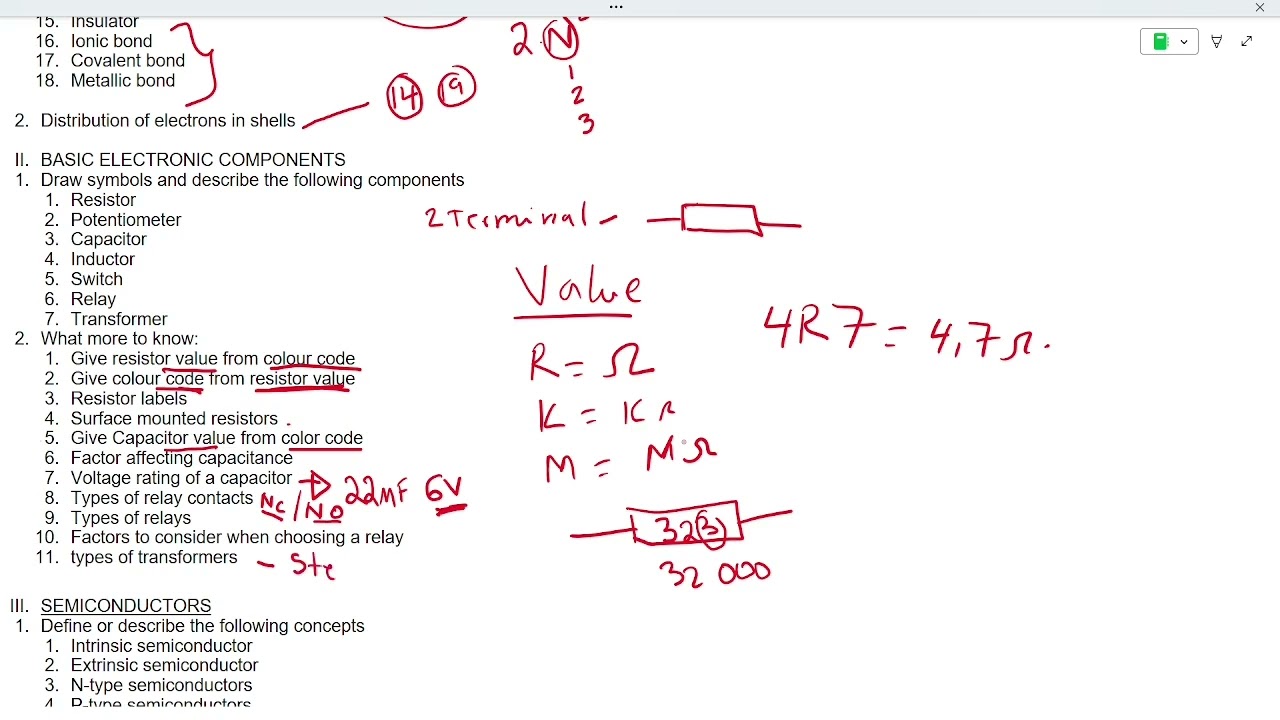 15. Insulator
16. Ionic bond
17. Covalent bond
18. Metallic bond
2 N
1
2
3
14 19
2. Distribution of electrons in shells
II. BASIC ELECTRONIC COMPONENTS
1. Draw symbols and describe the following components
1. Resistor
2. Potentiometer
3. Capacitor
4. Inductor
5. Switch
6. Relay
7. Transformer
2 Terminal -
Value
R = Ω
K = K
M = MΩ
4R7 = 4,7Ω.
323
32 000
2. What more to know:
1. Give resistor value from colour code
2. Give colour code from resistor value
3. Resistor labels
4. Surface mounted resistors
5. Give Capacitor value from color code
6. Factor affecting capacitance
7. Voltage rating of a capacitor 22MF 6V
8. Types of relay contacts NC/NO
9. Types of relays
10. Factors to consider when choosing a relay
11. types of transformers - Ste
III. SEMICONDUCTORS
1. Define or describe the following concepts
1. Intrinsic semiconductor
2. Extrinsic semiconductor
3. N-type semiconductors
4. P-type semiconductors